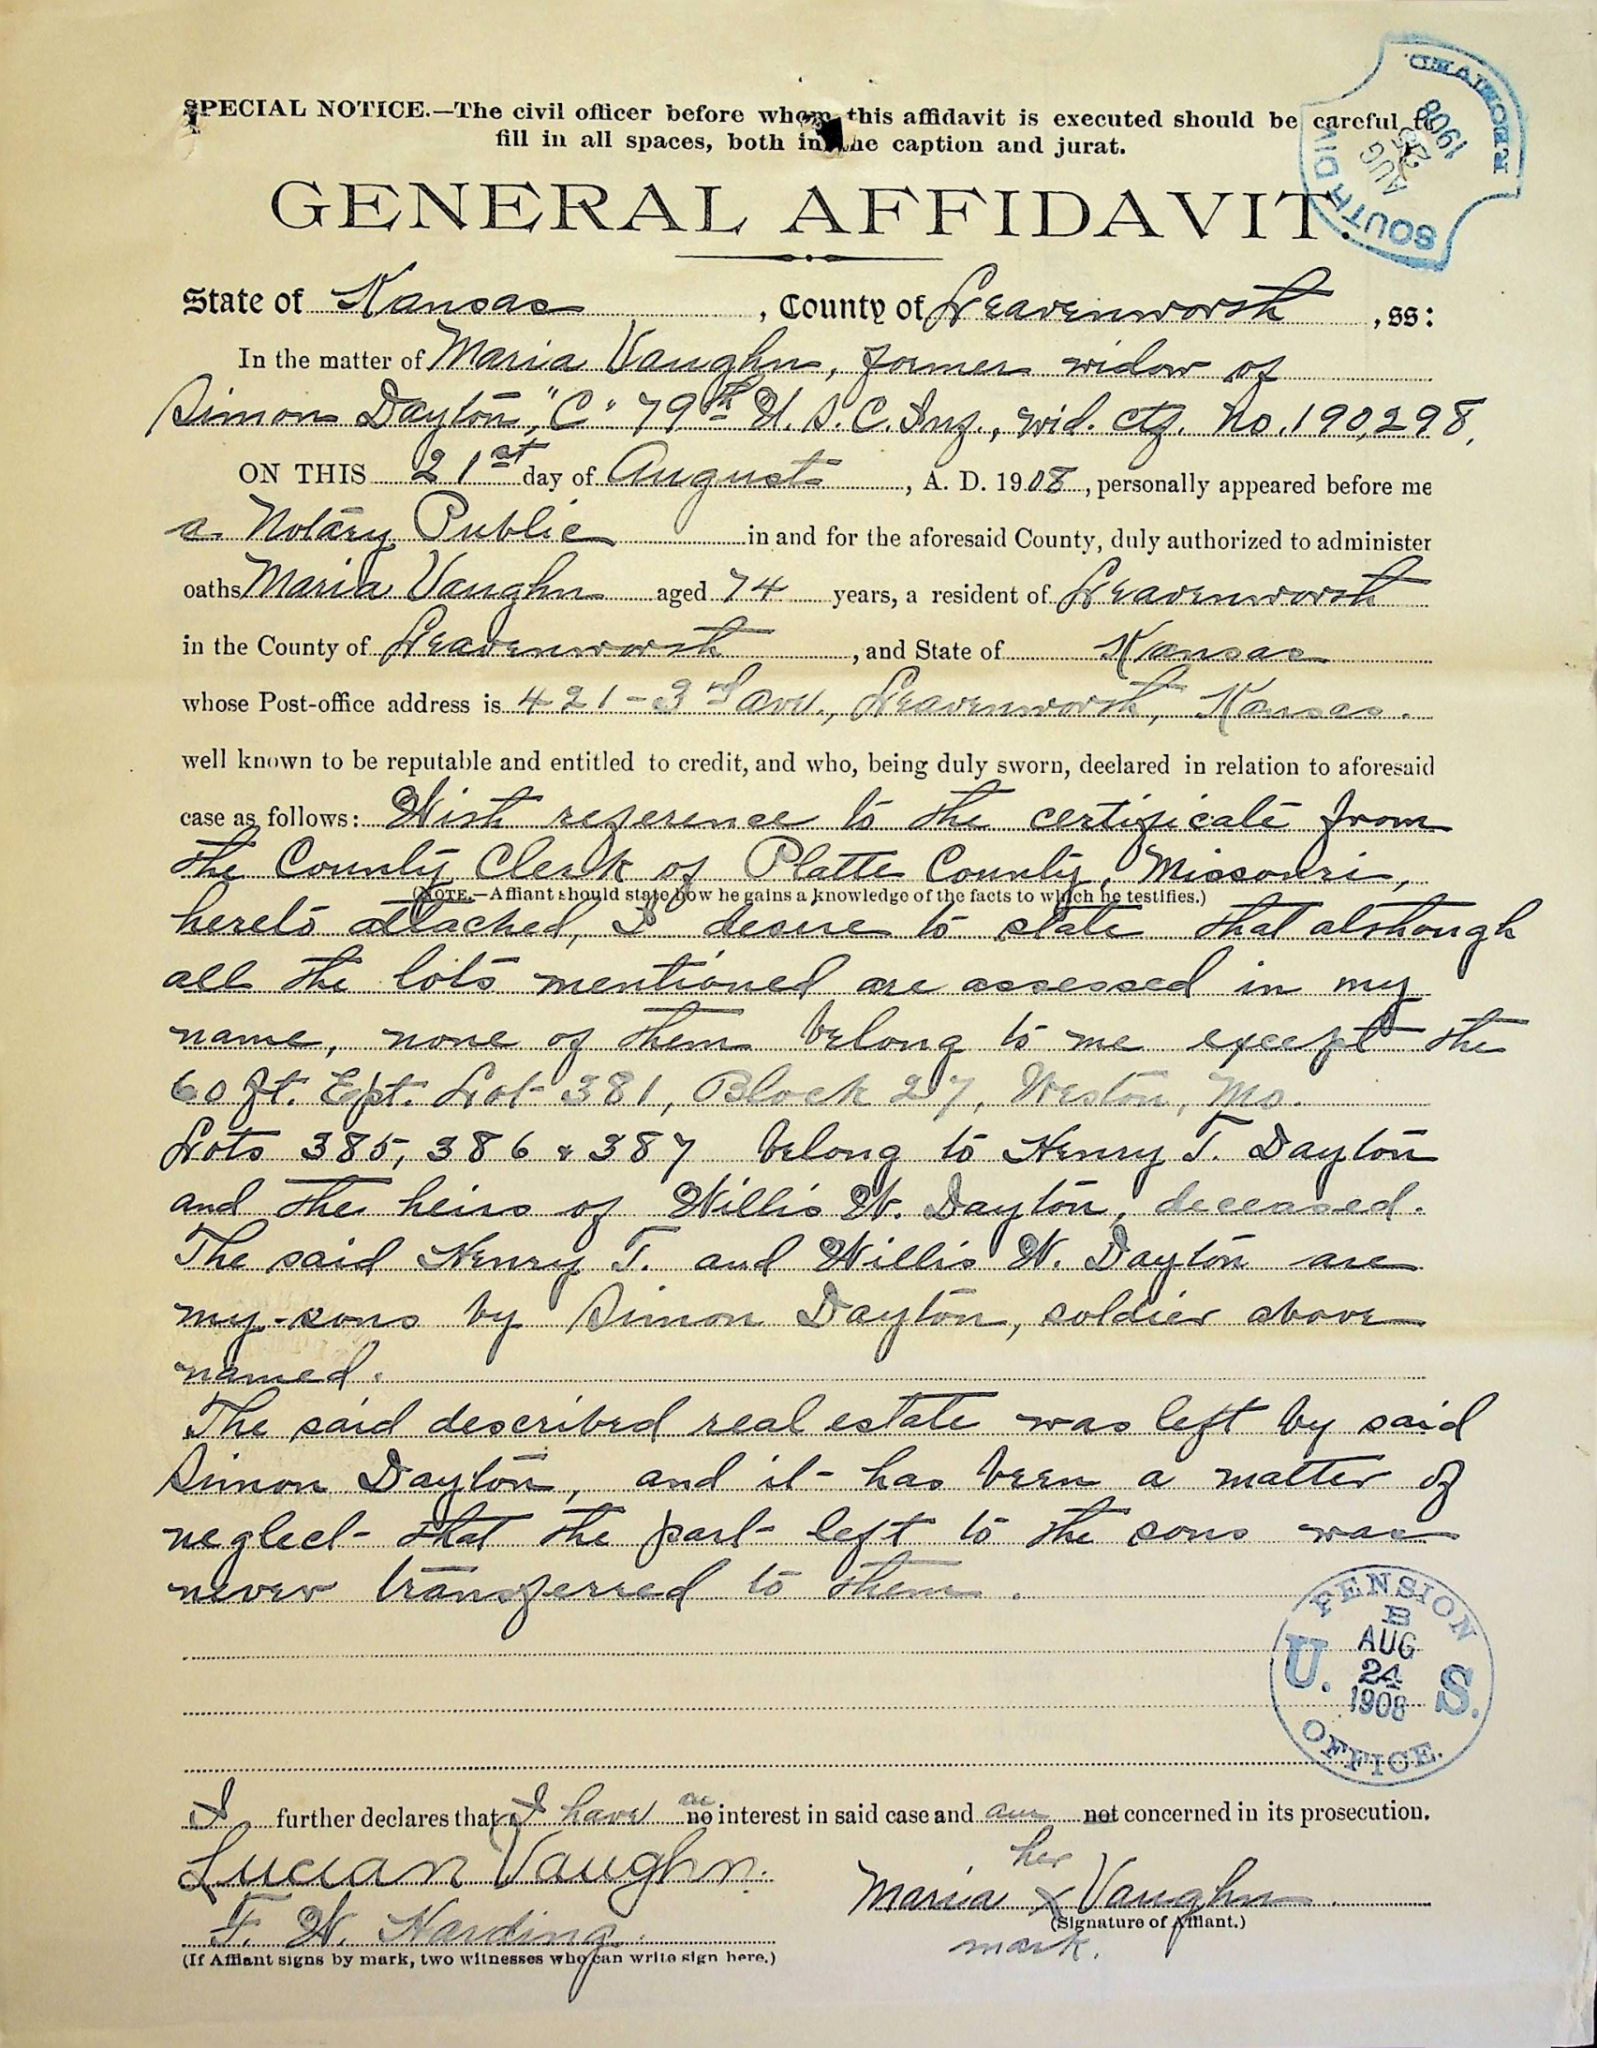 SPECIAL NOTICE.—The civil officer before whom this affidavit is executed should be careful to
fill in all spaces, both in the caption and jurat.
RECEIVED
AUG 25 1908
SOUTH DIV
GENERAL AFFIDAVIT.
State of Kansas, County of Leavenworth, ss:
In the matter of Maria Vaughn, former widow of
Simon Dayton, "C" 79th U. S. C. Inf., wid. ctf. No. 190,298,
ON THIS 21st day of August, A. D. 1908, personally appeared before me
a Notary Public in and for the aforesaid County, duly authorized to administer
oaths Maria Vaughn aged 74 years, a resident of Leavenworth
in the County of Leavenworth, and State of Kansas
whose Post-office address is 421-3rd ave., Leavenworth, Kansas.
well known to be reputable and entitled to credit, and who, being duly sworn, declared in relation to aforesaid
case as follows: With reference to the certificate from
the County Clerk of Platte County, Missouri,
(NOTE.—Affiant should state how he gains a knowledge of the facts to which he testifies.)
hereto attached, I desire to state that although
all the lots mentioned are assessed in my
name, none of them belong to me except the
60 ft. Ept. Lot 381, Block 27, Weston, Mo.
Lots 385, 386 & 387 belong to Henry T. Dayton
and the heirs of Willis W. Dayton, deceased.
The said Henry T. and Willis W. Dayton are
my sons by Simon Dayton, soldier above
named.
The said described real estate was left by said
Simon Dayton, and it has been a matter of
neglect that the part left to the sons was
never transferred to them.
U. S. PENSION OFFICE.
B
AUG
24
1908
I further declares that I have an no interest in said case and am not concerned in its prosecution.
Lucian Vaughn.
F. W. Harding.
(If Affiant signs by mark, two witnesses who can write sign here.)
her
Maria X Vaughn
(Signature of Affiant.)
mark.